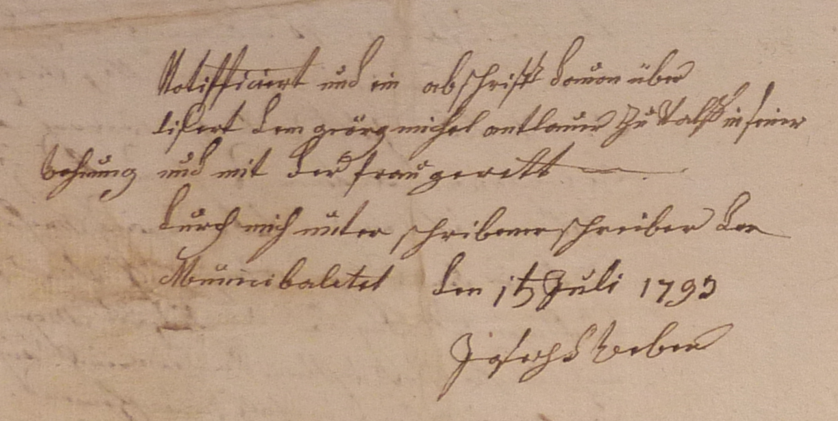 Notifficiert und ein abschrifft davon über
lifert dem georg michel antlauer zu Valff in seiner
wohnung und mit der frau gerett
durch mich unter schribener schreiber der
Municibalitet den 15 Juli 1793
Joseph Weber